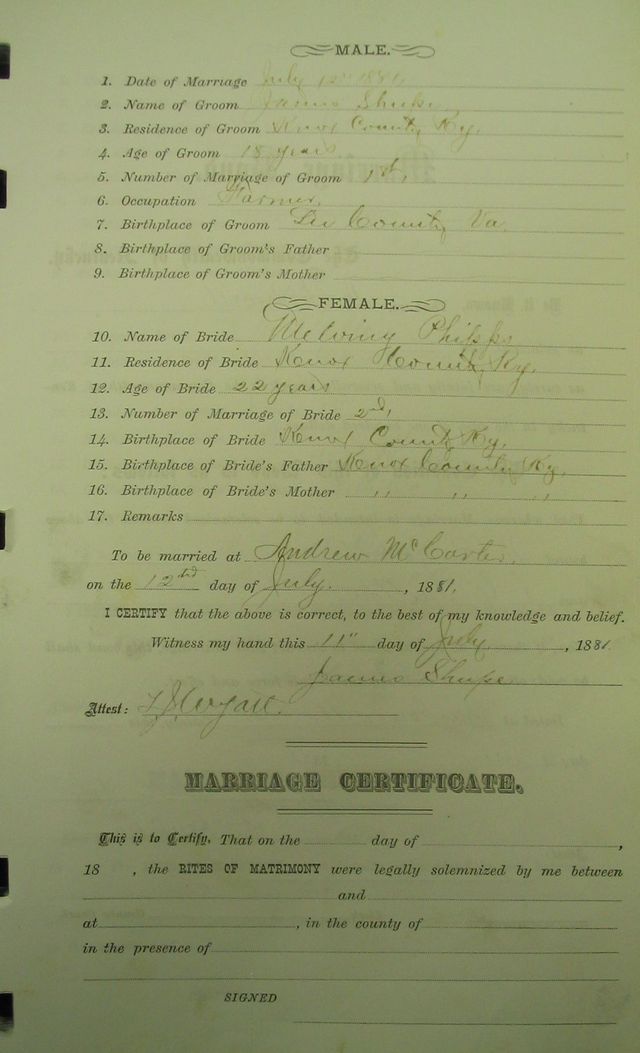 MALE.
1. Date of Marriage July 12" 1881.
2. Name of Groom James Shupe
3. Residence of Groom Knox County Ky.
4. Age of Groom 18 years
5. Number of Marriage of Groom 1st.
6. Occupation Farmer.
7. Birthplace of Groom Lee County Va
8. Birthplace of Groom's Father
9. Birthplace of Groom's Mother
FEMALE.
10. Name of Bride Melviny Phipps
11. Residence of Bride Knox County Ky.
12. Age of Bride 22 years
13. Number of Marriage of Bride 2nd,
14. Birthplace of Bride Knox County Ky.
15. Birthplace of Bride's Father Knox County Ky.
16. Birthplace of Bride's Mother " " "
17. Remarks
To be married at Andrew McCarter.
on the 12th day of July, 1881.
I CERTIFY that the above is correct, to the best of my knowledge and belief.
Witness my hand this 11" day of July, 1881.
James Shupe
Attest:
MARRIAGE CERTIFICATE.
This is to Certify, That on the day of ,
18 , the RITES OF MATRIMONY were legally solemnized by me between
and
at , in the county of
in the presence of
SIGNED